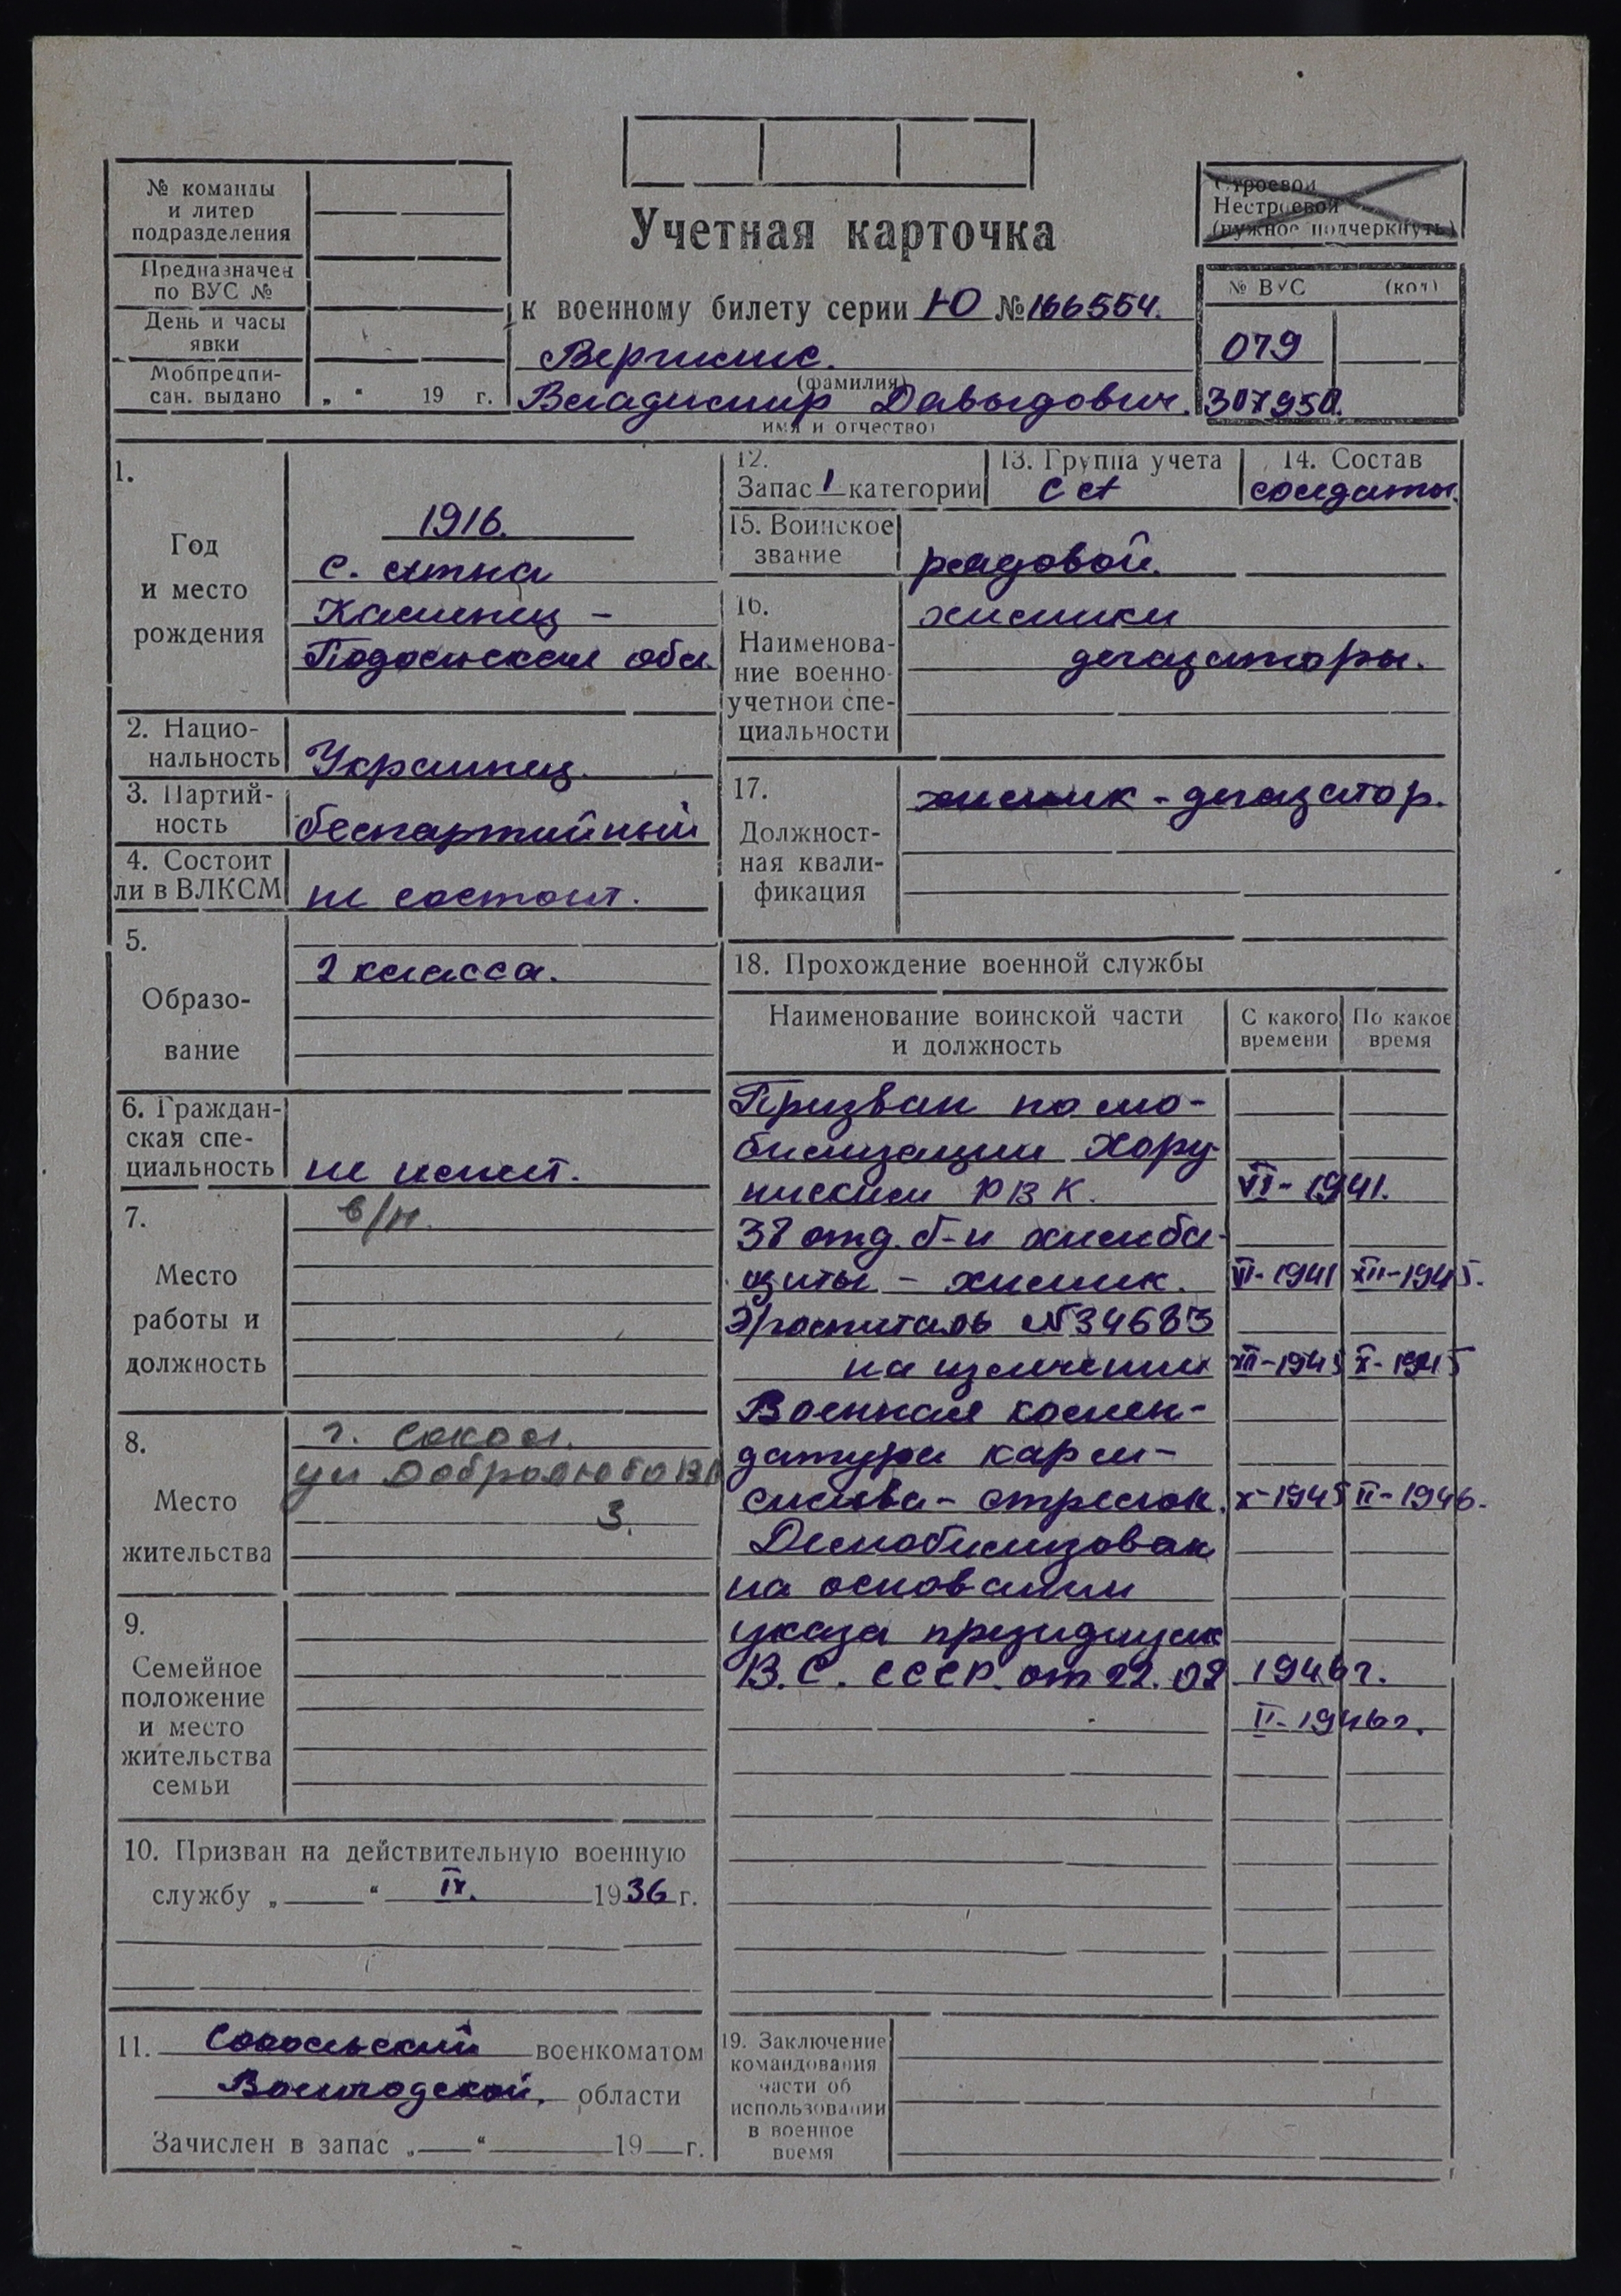 № команды
и литер
подразделения
Предназначен
по ВУС №
День и часы
явки
Мобпредпи-
сан. выдано „ “ 19 г.
Учетная карточка
к военному билету серии Ю № 166554.
(фамилия)
Владимир Давыдович.
имя и отчество)
Строевой
Нестроевой
(нужное подчеркнуть)
№ ВУС (код)
079
307950.
1.
Год
и место
рождения
1916.
с.
Каменец -
Подольская обл.
2. Нацио-
нальность Украинец.
3. Партий-
ность беспартийный
4. Состоит
ли в ВЛКСМ не состоит.
5.
Образо-
вание
2 класса.
6. Граждан-
ская спе-
циальность не имеет.
7.
Место
работы и
должность
в/н.
8.
Место
жительства
г. Сокол.
ул Добролюбова
3.
9.
Семейное
положение
и место
жительства
семьи
10. Призван на действительную военную
службу „ “ IX. 1936 г.
11. Сокольский военкоматом
Вологодской, области
Зачислен в запас „ “ 19 г.
12.
Запас 1 категории
13. Группа учета
СА
14. Состав
солдаты.
15. Воинское
звание рядовой.
16.
Наименова-
ние военно-
учетной спе-
циальности
химики
дегазаторы.
17.
Должност-
ная квали-
фикация
химик - дегазатор.
18. Прохождение военной службы
Наименование воинской части
и должность
С какого
времени
По какое
время
Призван по мо-
билизации
РВК. VI - 1941.
38 отд. б-н химза-
щиты - химик. VI - 1941 XII - 1945.
Э/госпиталь №
на излечении XII - 1945 X - 1945
Военная комен-
датура
- стрелок. X - 1945 II - 1946.
Демобилизован
на основании
указа президиума
В.С. СССР. от 22.02 1946 г.
II - 1946 г.
19. Заключение
командования
части об
использовании
в военное
время